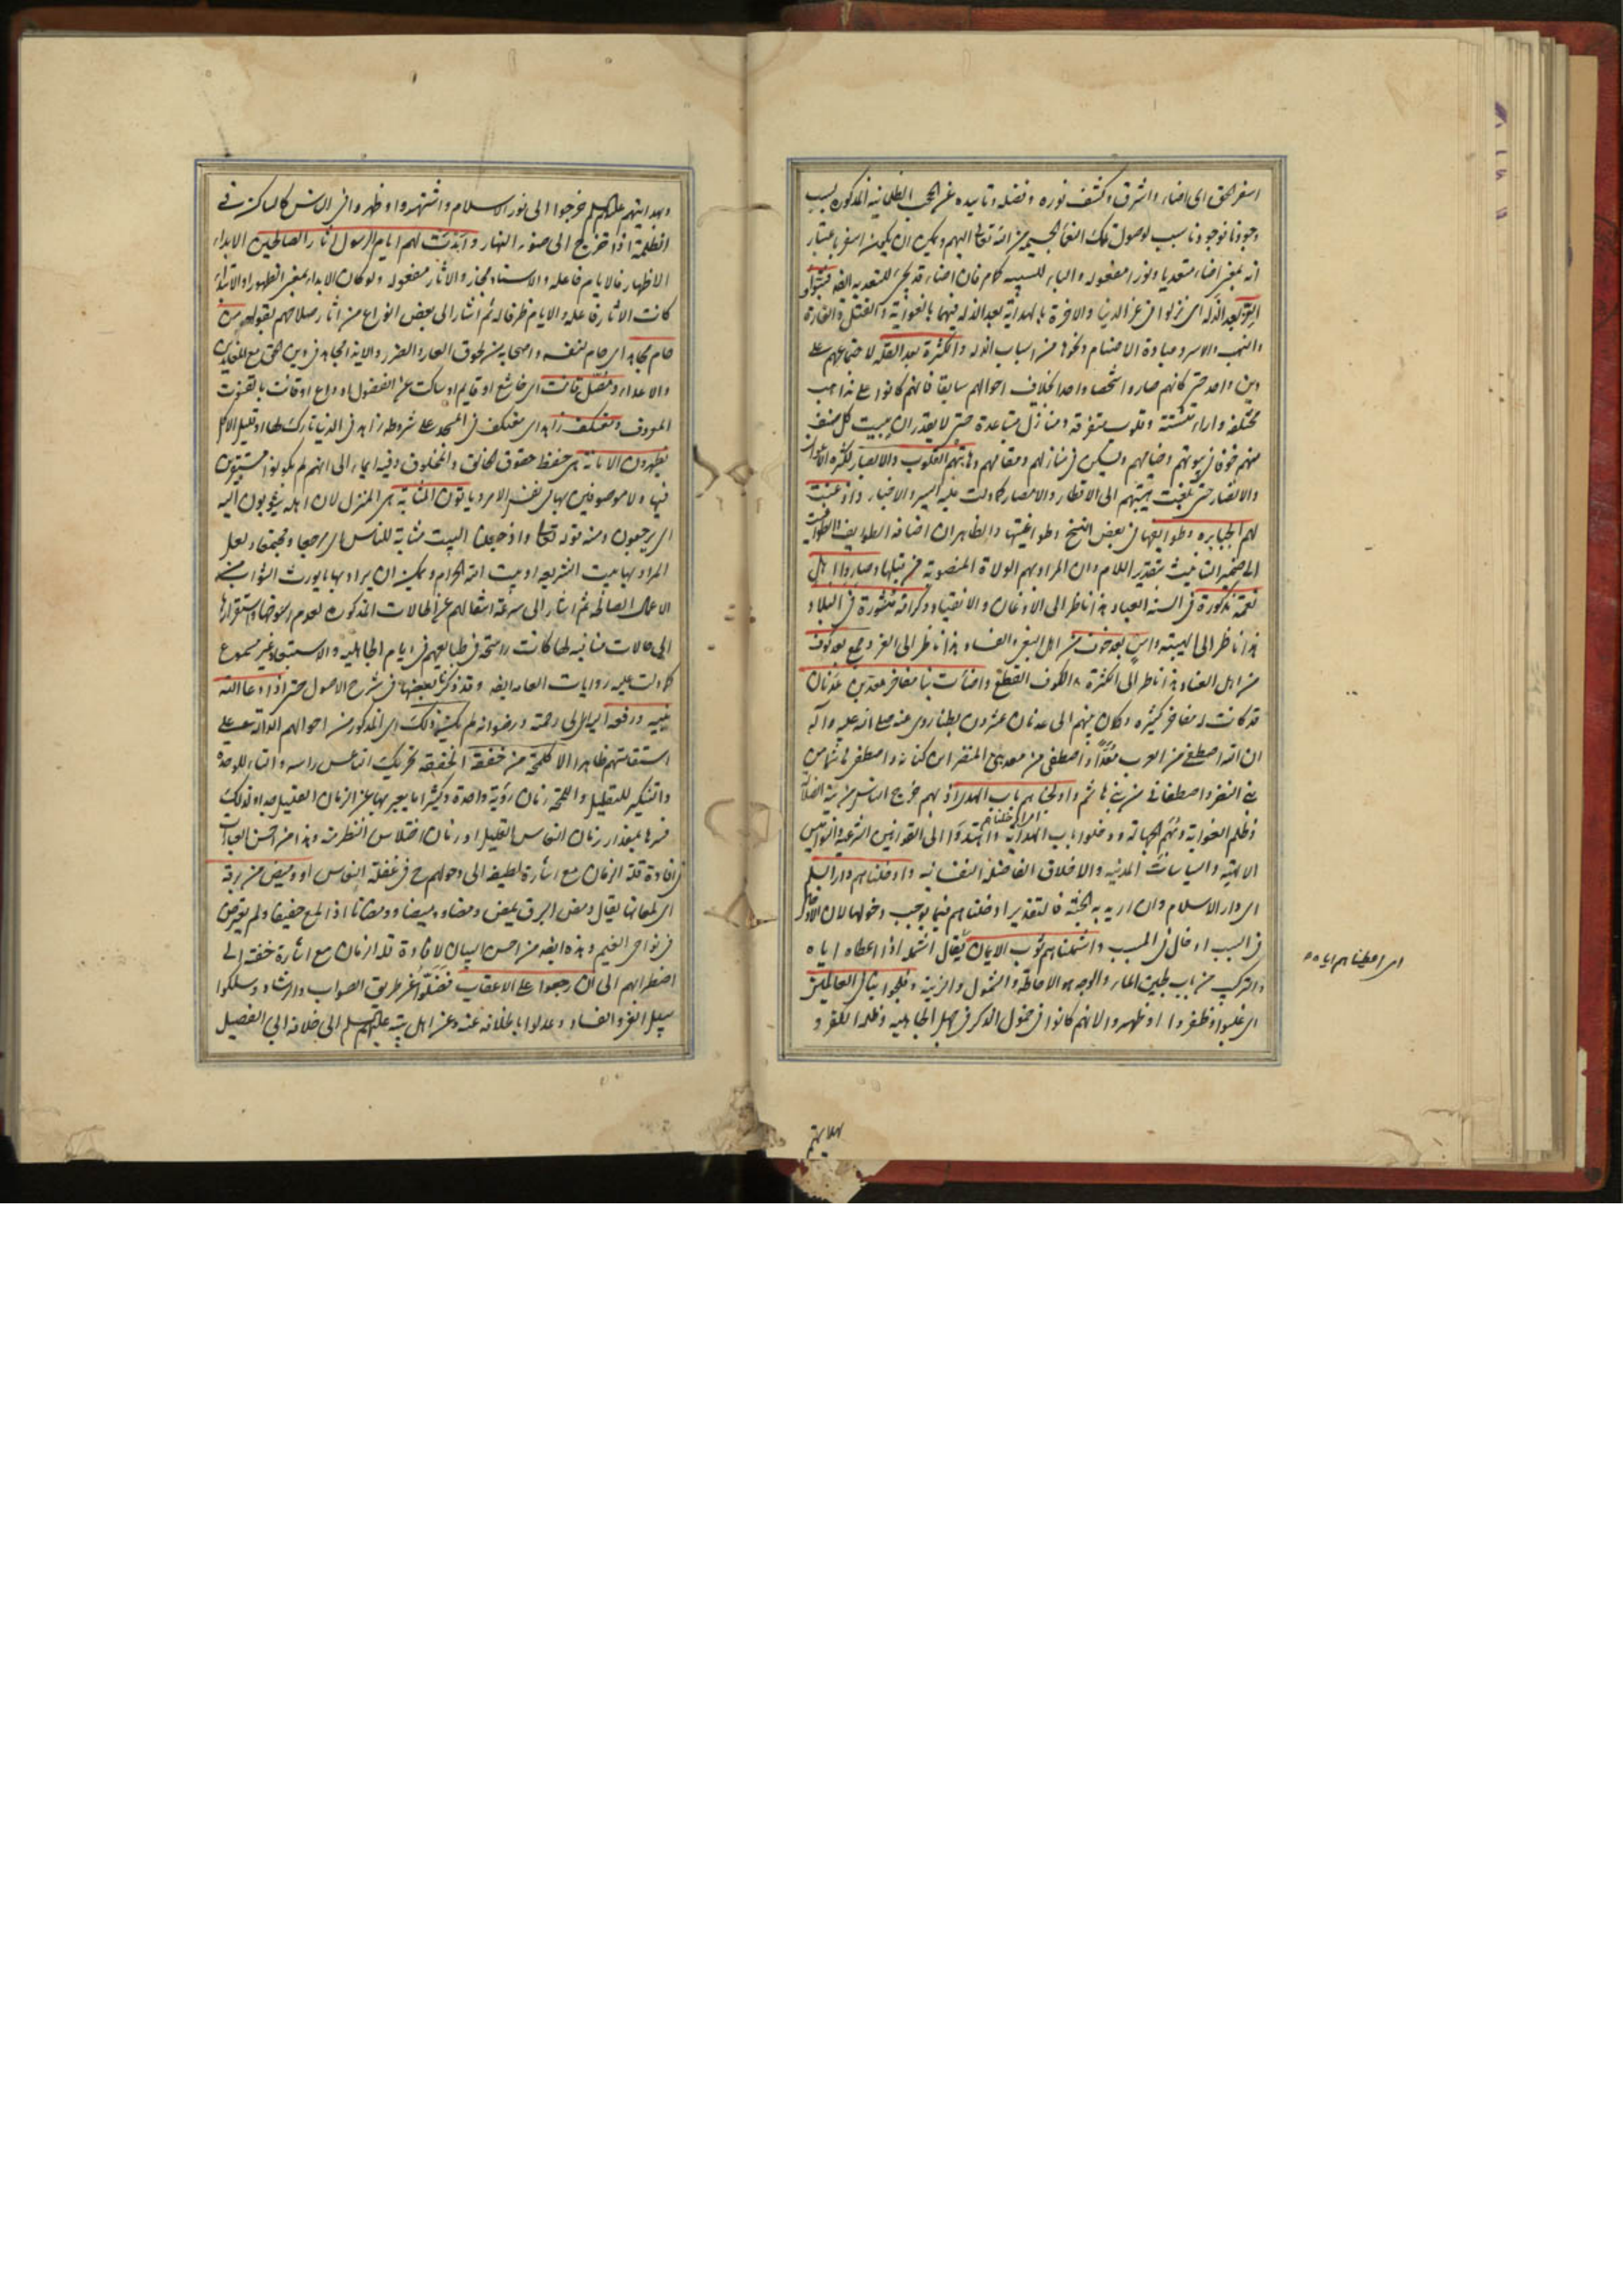 اسفر الحق اى اضاء واشرق وكشف نوره وفضله وتاييده عن الحجب الظلمانية المذكورة بسبب
وجودنا فوجودنا سبب لوصول تلك النعماء الجسيمة من الله تعالى اليهم ويمكن ان يكون اسفر باعتبار
انه بمعنى اضاء متعديا ونورا مفعوله والباء للسببيه كما مر فان اضاء قد يجئ للتعديه ايضا فتبوأوا
العز بعد الذله اى نزلوا فى عز الدنيا والاخرة بالهداية بعد الذله فيهما بالغواية والقتل والغارة
والنهب والاسر وعبادة الاصنام ونحوها من اسباب الذله والكثرة بعد القله لاجتماعهم على
دين واحد حتى كانهم صاروا شخصا واحدا بخلاف احوالهم سابقا فانهم كانوا على مذاهب
مختلفه واراء متشتته وقلوب متفرقه ومنازل متباعدة حتى لا يقدر ان يبيت كل صنف
منهم خوفا فى بيوتهم وخيامهم ويسكن فى منازلهم ومقامهم وهابتهم القلوب والابصار لكثرة الاعوان
والانصار حتى بلغت هيبتهم الى الاقطار والامصار كما دلت عليه السير والاخبار واذعنت
لهم الجبابره وطوايفها فى بعض النسخ وطواغيتها والظاهر ان اضافه الطوايف والطواغيت
الى ضمير التانيث بتقدير اللام وان المراد بهم الولاة المنصوبة من قبلها وصاروا اهل
نعمة مذكورة فى السنة العباد هذا ناظر الى الاذعان والانقياد وكرامة منشورة فى البلاد
هذا ناظر الى الهيبته وامن بعد خوف من اهل البغى والفساد هذا ناظر الى العز وجمع بعد كوف
من اهل العناد هذا ناظر الى الكثرة والكوف القطع واضأت بنا مفاخر معد بن عدنان
قد كانت له مفاخر كثيره وكان بينهم الى عدنان عشرون بطنا روى عنه صلى الله عليه وآله
ان الله اصطفى من العرب معدا واصطفى من معد بنى النضر ابن كنانه واصطفى هاشما من
بنى النضر واصطفانى من بنى هاشم واولجناهم باب الهدى اذ بهم خرج الناس من تيه الضلالة
اى ادخلناهم
وظلم الغواية وتهم الجهالة ودخلوا باب الهداية واهتدوا الى القوانين الشرعية والنواميس
الالهية والسياسات المدنيه والاخلاق الفاضله النفسانيه وادخلناهم دار السلم
اى دار الاسلام وان اريد به الجنة فالتقدير ادخلناهم فيما يوجب دخولها لان الادخال
فى السبب ادخال فى المسبب واشملناهم ثوب الايمان يقال اشمله اذا اعطاه اياه
اى اعطيناهم اياه
والتركيب من باب لجين الماء والوجه هو الاحاطة والشمول والزينة وفلجوا بنا فى العالمين
اى غلبوا وظفروا او ظهروا لانهم كانوا فى خمول الذكر فى جهل الجاهليه وظلمه الكفر و
بهدايتهم
وبهدايتهم عليهم السلم خرجوا الى نور الاسلام واشتهروا وظهروا فى الناس كالساكن فى
الظلمة اذا خرج الى ضوء النهار وابدت لهم ايام الرسول اثار الصالحين الابداء
الاظهار فالايام فاعله والاسناد مجاز والاثار مفعوله ولو كان الابداء بمعنى الظهور او الابتداء
كانت الاثار فاعله والايام ظرفا له ثم اشار الى بعض انواع من اثار صلاحهم بقوله من
حام مجاهد اى حام لنفسه واصحابه من لحوق العار والضرر والاية المجاهد فى دين الحق مع المعاندين
والاعداء ومصل قانت اى خاشع او قايم او ساكت عن الفضول او داع او قانت بالقنوت
المعروف ومعتكف زاهد اى معتكف فى المسجد على شروطه زاهد فى الدنيا تارك لها او قليل الاكل
يظهرون الامانة اى حفظ حقوق الخالق والمخلوق وفيه ايماء الى انهم لم يكونوا مستيقنين
فيها ولا موصوفين بها فى نفس الامر وياتون المثابة اى المنزل لان اهله يثوبون اليه
اى يرجعون ومنه قوله تعالى واذ جعلنا البيت مثابة للناس اى مرجعا ومجتمعا ولعل
المراد بها بيت الشريعه او بيت الله الحرام ويمكن ان يراد بها ما يورث الثواب من
الاعمال الصالحة ثم اشار الى سرعة انتقالهم عن الحالات المذكورة لعدم رسوخها واستقرارها
الى حالات منافيه لها كانت راسخة فى طبايعهم فى ايام الجاهليه والاستبعاد غير مسموع
كما دلت عليه روايات العامه ايضا وقد ذكرنا بعضها فى شرح الاصول حتى اذا دعا الله
نبيه ورفعه اليه اى الى رحمته ورضوانه لم يك بعد ذلك اى المذكور من احوالهم الدالة على
استقامتهم ظاهرا الا كلمحة من خفقة الخفقه تحريك الناعس راسه والتاء للوحدة
والتنكير للتقليل واللمحة زمان رؤية واحدة وكثيرا ما يعبر بها عن الزمان القليل جدا ولذلك
فسرها بمقدار زمان النعاس القليل او زمان اختلاس النظر منه وهذا من احسن العبارات
فى افادة قلة الزمان مع اشارة لطيفه الى دخولهم ح فى غفلة النعاس او وميض من برقة
اى لمعانها يقال ومض البرق يمض ومضا ووميضا وومضانا اذا لمع خفيفا ولم يعترض
فى نواحى الغيم وهذه ايضا من احسن البيان لافادة قلة الزمان مع اشارة خفية الى
اضطرابهم الى ان رجعوا على الاعقاب فضلوا عن طريق الصواب والرشاد وسلكوا
سبيل الغى والفساد وعدلوا باطلاقه عنه وعن اهل بيته عليهم السلم الى خلافه الى الفصيل